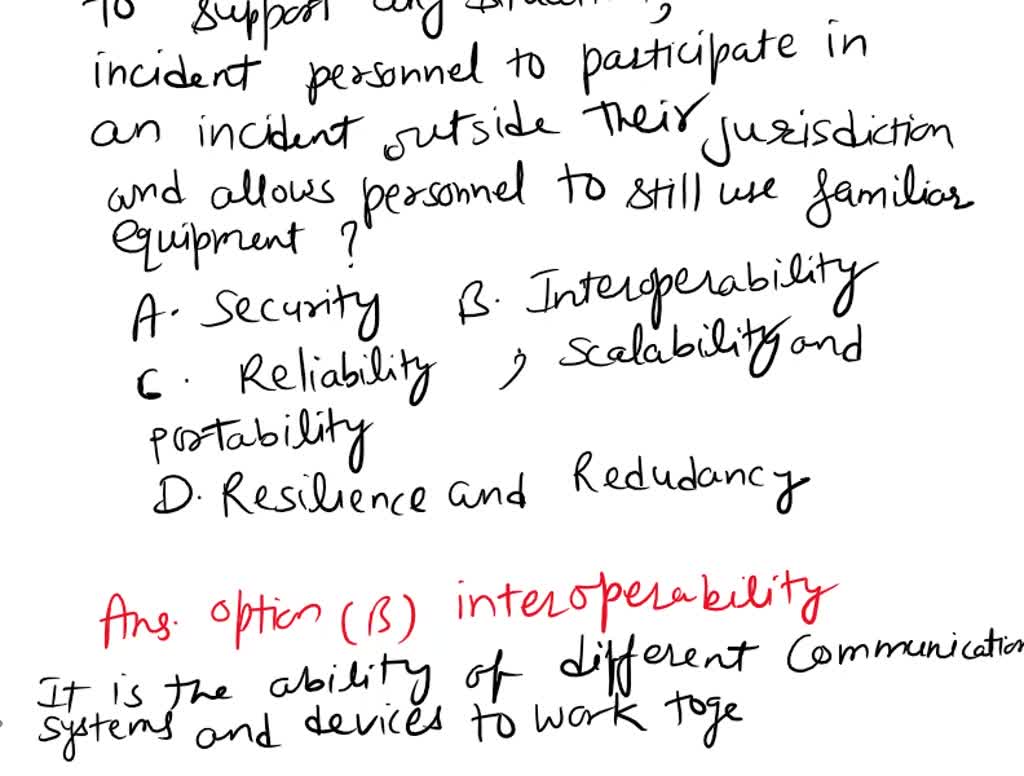 To support any
incident personnel to participate in
an incident outside their jurisdiction
and allows personnel to still use familiar
equipment ?
A. Security B. Interoperability
C. Reliability , Scalability and
portability
D. Resilience and Redudancy
Ans. option (B) interoperability
It is the ability of different Communication
systems and devices to work toge